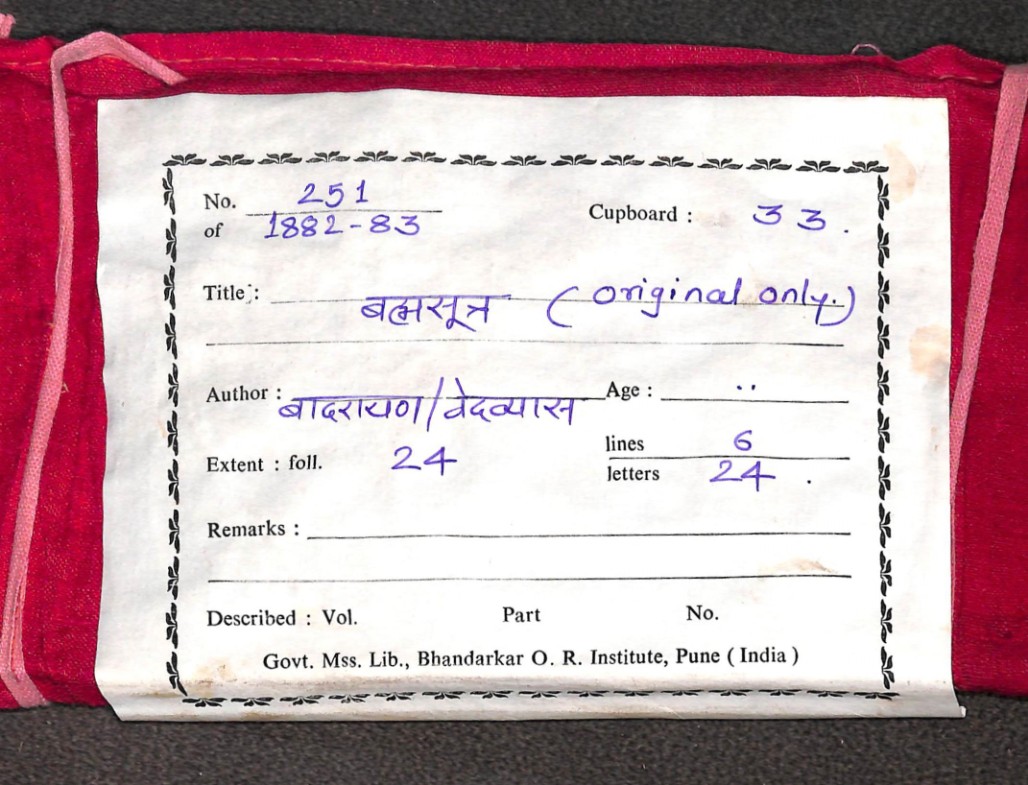 No. 251 of 1882-83 Cupboard : 33.
Title : ब्रह्मसूत्र (original only.)
Author : बादरायण/वेदव्यास Age : ..
Extent : foll. 24 lines 6 letters 24.
Remarks :
Described : Vol. Part No.
Govt. Mss. Lib., Bhandarkar O. R. Institute, Pune ( India )